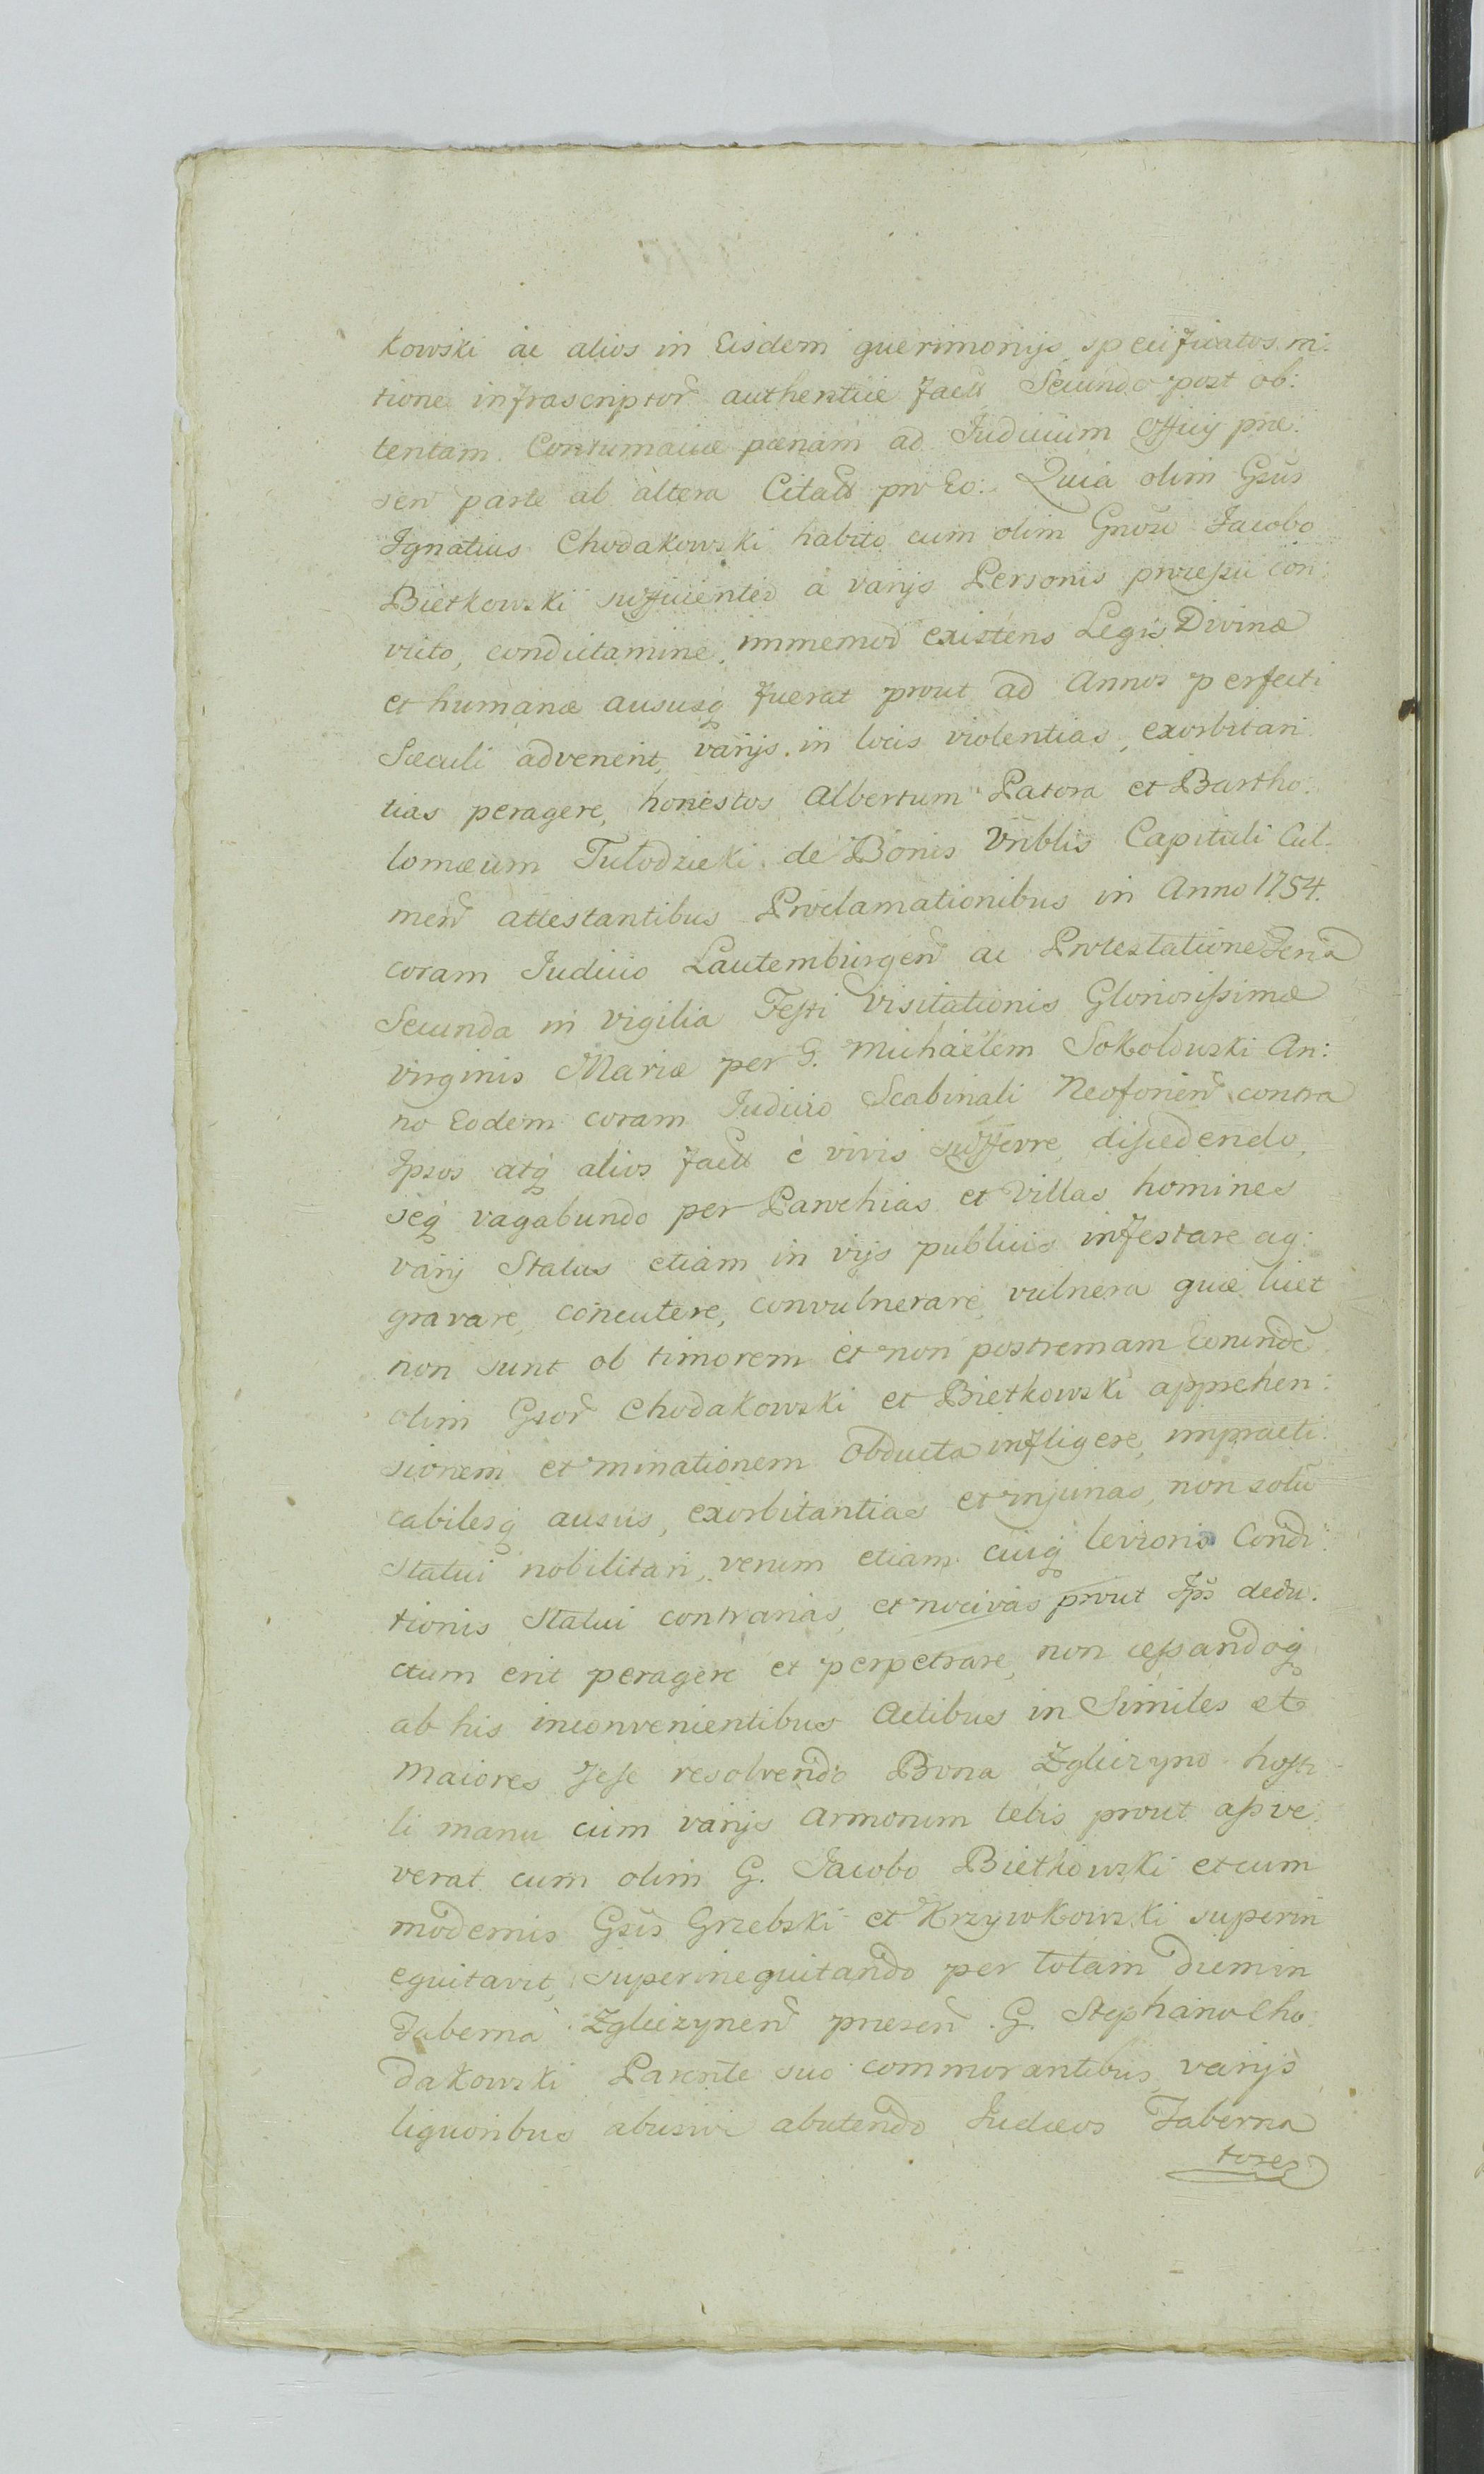 kowski ac alios in Eisdem querimonijs specificatos ra:
tione infrascriptor̃ authentice fact̃ Secundo post ob:
tentam Contumaciæ pœnam ad Judicium Officij præ:
sen̄ parte ab altera Citat̃ pro Eo: Quia olim Gsūs
Ignatius Chodakowski habito cum olim Gnõso Jacobo
Bietkowski sufficienter à varijs Personis processu con:
victo, condictamine, immemor existens Legis Divinæ
et humanæ aususq̃ fuerat prout ad Annos perfecti
Sæculi advenerit, varijs in locis violentias, exorbitan
tias peragere, honestos Albertum Patora et Bartho:
lomæum Tułodziecki de Bonis Vnblis Capituli Cul:
men̄ attestantibus Proclamationibus in Anno 1754.
coram Judicio Lautemburgen̄ ac Protestatione Feria
Secunda in vigilia Festi Visitationis Gloriosissimæ
Virginis Mariæ per G. Michaëlem Sokołowski An:
no Eodem coram Judicio Scabinali Neoforien̄ contra
Ipsos atq̃ alios fact̃ è vivis sufferre, discedendo,
seq̃ vagabundo per Parochias et Villas homines
varij Status etiam in vijs publicis infestare ag:
gravare, concutere, convulnerare, vulnera quæ licet
non sunt ob timorem et non postremam Eorundē
olim Gsor̃ Chodakowski et Bietkowski apprehen:
sionem et minationem obducta infligere, impracti:
cabilesq̃ ausus, exorbitantias et injurias, non solū
Statui nobilitari, verum etiam cuiq̃ levioris Condi:
tionis Statui contrarias, et nocivas prout Ips̄ dedu:
ctum erit peragere et perpetrare, non cessandoq̃
ab his inconvenientibus Actibus in Similes et
maiores sese resolvendo Bona Zgliczyno hosti
li manu cum varijs Armorum telis prout assve:
verat cum olim G. Jacobo Bietkowski et cum
modernis Gsis Grzebski et Krzywkowski superin
equitavit, superinequitando per totam diem in
Taberna Zgliczynen̄ præsen̄ G. Stephano Cho:
dakowski Parente suo commorantibus, varijs
liquoribus abusivè abutendo Judæos Taberna
tores